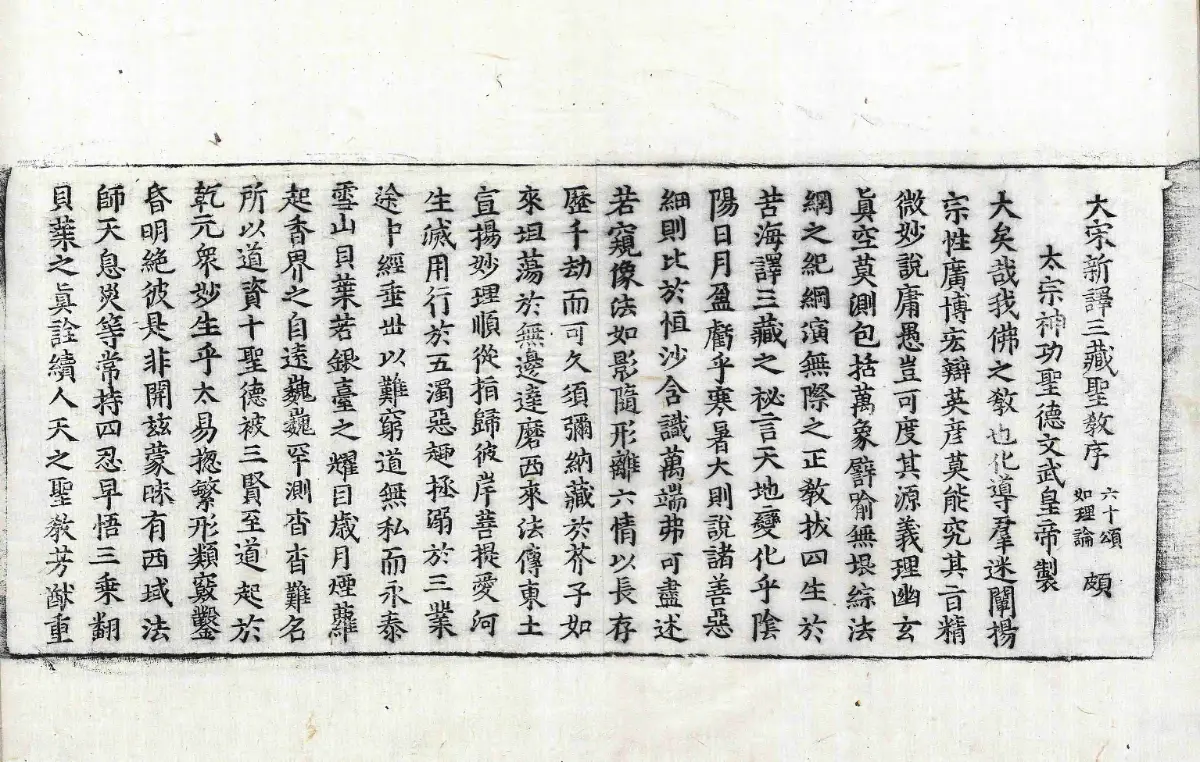 大宋新譯三藏聖教序 六十頌如理論 頗
太宗神功聖德文武皇帝製
大矣哉我佛之教也化導羣迷闡揚
宗性廣博宏辯英彦莫能究其旨精
微妙說庸愚豈可度其源義理幽玄
眞空莫測包括萬象譬喻無垠綜法
網之紀綱演無際之正教拔四生於
苦海譯三藏之祕言天地變化乎陰
陽日月盈虧乎寒暑大則說諸善惡
細則比於恒沙含識萬端弗可盡述
若窺像法如影隨形離六情以長存
歷千劫而可久須彌納藏於芥子如
來坦蕩於無邊達磨西來法傳東土
宣揚妙理順從指歸彼岸菩提愛河
生滅用行於五濁惡趣拯溺於三業
途中經垂世以難窮道無私而永泰
雪山貝葉若銀臺之耀目歲月煙蘿
起香界之自遠巍巍罕測杳杳難名
所以道資十聖德被三賢至道起於
乾元衆妙生乎太易捴繁形類竅鑿
昏明絕彼是非開兹蒙昧有西域法
師天息災等常持四忍早悟三乘翻
貝葉之眞詮續人天之聖教芳猷重